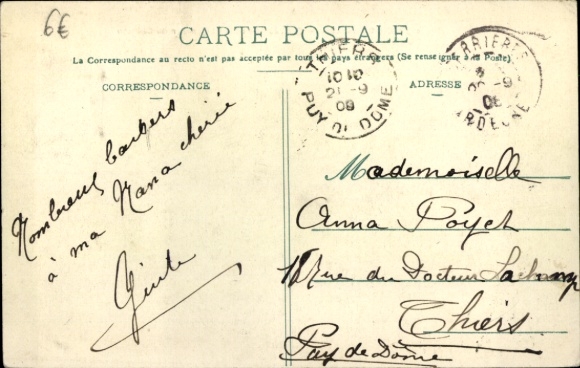 6€
CARTE POSTALE
La Correspondance au recto n'est pas acceptée par tous les pays étrangers (Se renseigner à la Poste)
CORRESPONDANCE
ADRESSE
THIERS
10 10
21 -9
08
PUY DE DOME
-9
08
ARDECHE
Nombreux baisers
à ma Nana chérie
Mademoiselle
Anna Poyet
Rue du Docteur Lachamp
Thiers
Puy de Dôme